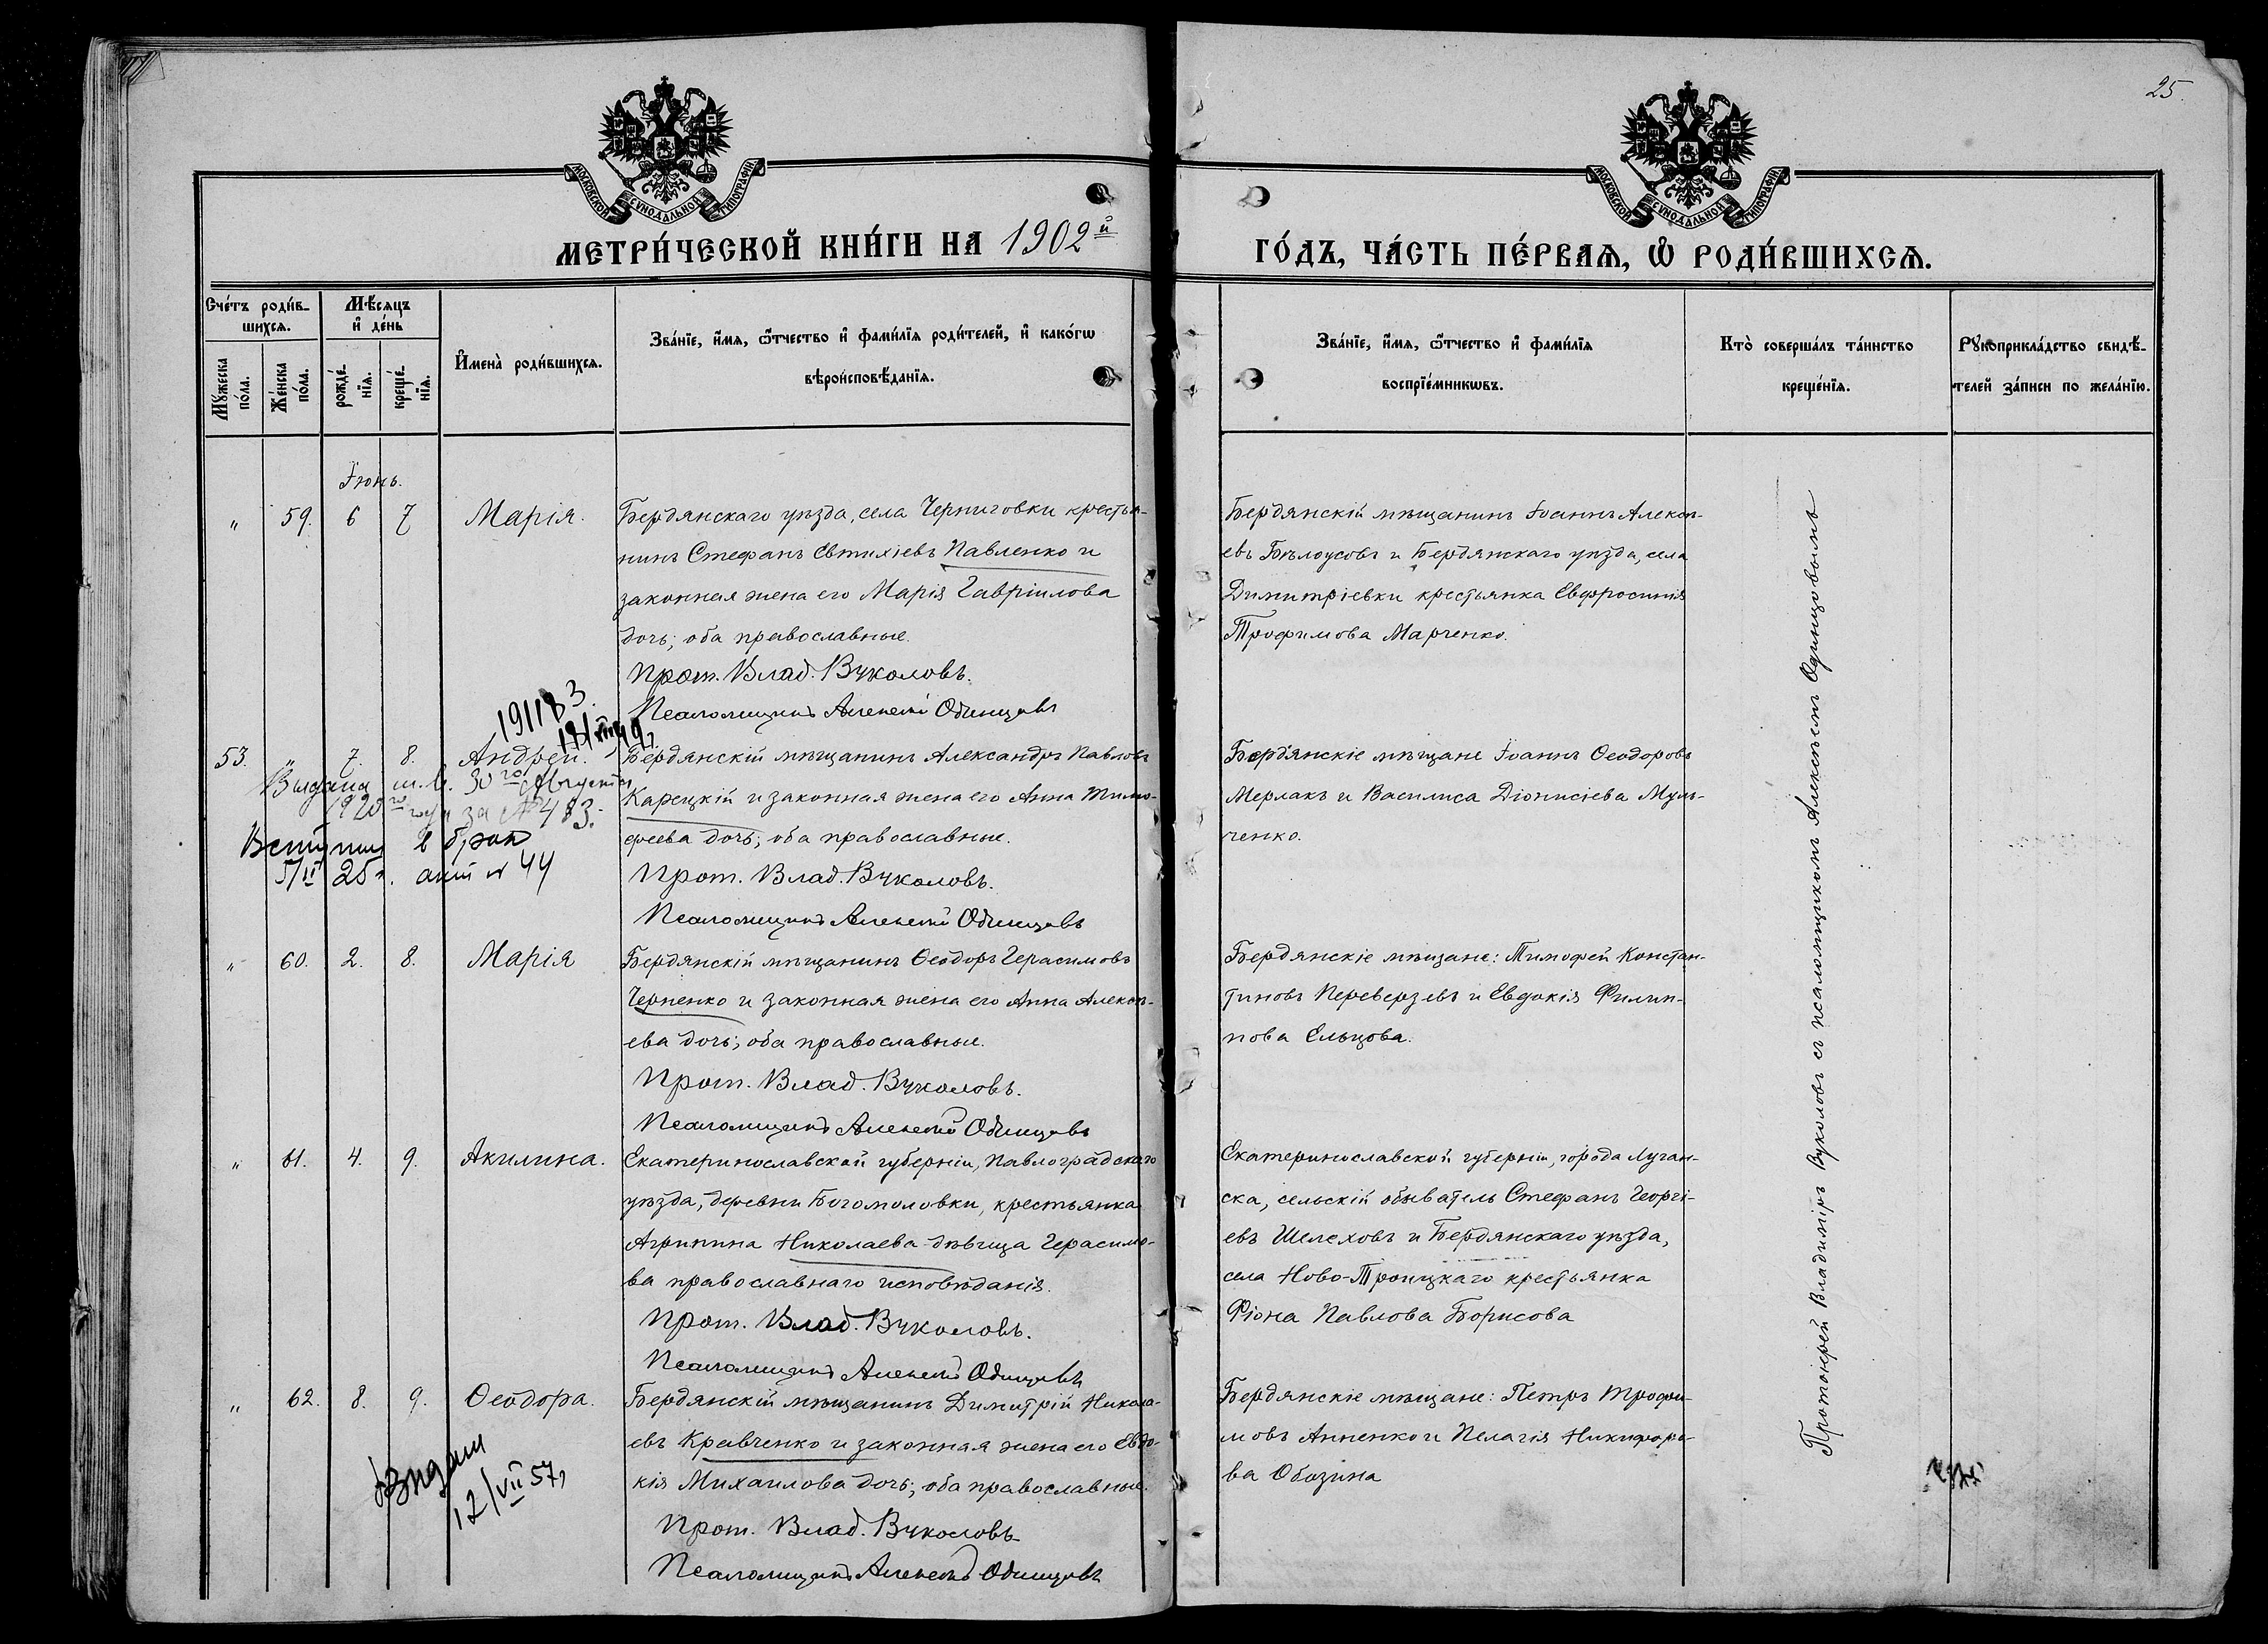 25.
МОСКОВСКОЙ СУНОДАЛЬНОЙ ТИПОГРАФІИ
МОСКОВСКОЙ СУНОДАЛЬНОЙ ТИПОГРАФІИ
МЕТРИ́ЧЕСКОЙ КНИ́ГИ НА 1902й
ГО́ДЪ, ЧА́СТЬ ПЕ́РВАѦ, Ѡ҆ РОДИ́ВШИХСѦ.
Сче́тъ роди́в-
шихсѧ.
Мꙋ́жеска по́ла.
Же́нска по́ла.
Мѣ́сѧцъ
и҆ де́нь
рожде́-
нїѧ.
креще́-
нїѧ.
И҆мена̀ роди́вшихсѧ.
Зва́нїе, и҆́мѧ, ѻ҆́тчество и҆ фами́лїѧ роди́телей, и҆ како́гѡ
вѣроисповѣ́данїѧ.
Зва́нїе, и҆́мѧ, ѻ҆́тчество и҆ фами́лїѧ
воспрїе́мникѡвъ.
Кто̀ соверша́лъ та́инство
креще́нїѧ.
Рꙋкоприкла́дство свидѣ́-
телей за́писи по жела́нїю.
Іюнь.
" 59. 6 7 Марія.
Бердянскаго уѣзда, села Черниговки крестья-
нинъ Стефанъ Евтихіевъ Павленко и
законная жена его Марія Гавріилова
дочь; оба православные.
Прот. Влад. Вуколовъ.
Псаломщикъ Алексѣй Одинцовъ
Бердянскій мѣщанинъ Іоаннъ Алексѣ-
евъ Бѣлоусовъ и Бердянскаго уѣзда, села
Димитріевки крестьянка Евфросинія
Трофимова Марченко.
191183.
53. " 7. 8. Андрей.
Выдана м.в. 30го Августа
1920го года за № 483.
Вступил в брак
5/II 25г. акт № 44
Бердянскій мѣщанинъ Александръ Павловъ
Карецкій и законная жена его Анна Тимо-
феева дочь; оба православные.
Прот. Влад. Вуколовъ.
Псаломщикъ Алексѣй Одинцовъ
Бердянскіе мѣщане Іоаннъ Ѳеодоровъ
Мерлакъ и Василиса Діонисіева Муль-
ченко.
" 60. 2. 8. Марія
Бердянскій мѣщанинъ Ѳеодоръ Герасимовъ
Черненко и законная жена его Анна Алексѣ-
ева дочь; оба православные.
Прот. Влад. Вуколовъ.
Псаломщикъ Алексѣй Одинцовъ
Бердянскіе мѣщане: Тимофей Констан-
тиновъ Переверзевъ и Евдокія Филип-
пова Ельцова.
" 61. 4. 9. Акилина.
Екатеринославской губерніи, Павлоградскаго
уѣзда, деревни Богомоловки, крестьянка
Агрипина Николаева дѣвица Герасимо-
ва православнаго исповѣданія.
Прот. Влад. Вуколовъ.
Псаломщикъ Алексѣй Одинцовъ
Екатеринославской губерніи, города Луган-
ска, сельскій обыватель Стефанъ Георгі-
евъ Шелеховъ и Бердянскаго уѣзда,
села Ново-Троицкаго крестьянка
Фіона Павлова Борисова
" 62. 8. 9. Ѳеодора.
Видан
12/VII 57г
Бердянскій мѣщанинъ Димитрій Никола-
евъ Кравченко и законная жена его Евдо-
кія Михаилова дочь; оба православные.
Прот. Влад. Вуколовъ
Псаломщикъ Алексѣй Одинцовъ
Бердянскіе мѣщане: Петръ Трофи-
мовъ Анненко и Пелагія Никифоро-
ва Обозина
Протоіерей Владиміръ Вуколовъ съ псаломщикомъ Алексѣемъ Одинцовымъ